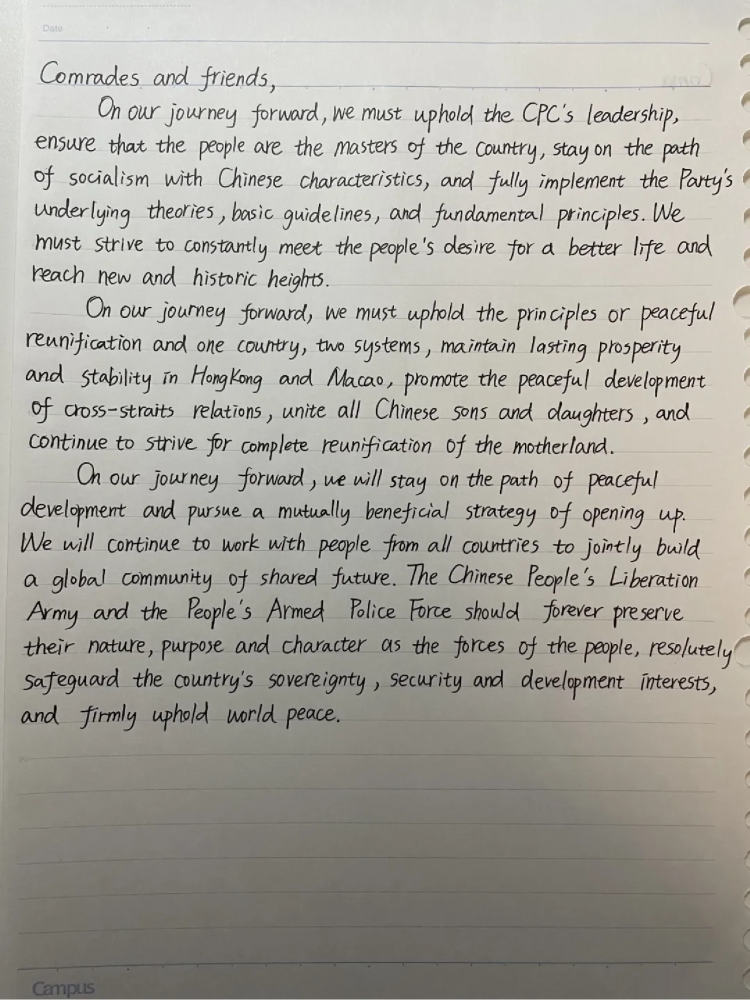 Date
Comrades and friends,
On our journey forward, we must uphold the CPC's leadership,
ensure that the people are the masters of the country, stay on the path
of socialism with Chinese characteristics, and fully implement the Party's
underlying theories, basic guidelines, and fundamental principles. We
must strive to constantly meet the people's desire for a better life and
reach new and historic heights.
On our journey forward, we must uphold the principles or peaceful
reunification and one country, two systems, maintain lasting prosperity
and stability in HongKong and Macao, promote the peaceful development
of cross-straits relations, unite all Chinese sons and daughters, and
continue to strive for complete reunification of the motherland.
On our journey forward, we will stay on the path of peaceful
development and pursue a mutually beneficial strategy of opening up.
We will continue to work with people from all countries to jointly build
a global community of shared future. The Chinese People's Liberation
Army and the People's Armed Police Force should forever preserve
their nature, purpose and character as the forces of the people, resolutely
safeguard the country's sovereignty, security and development interests,
and firmly uphold world peace.
Campus